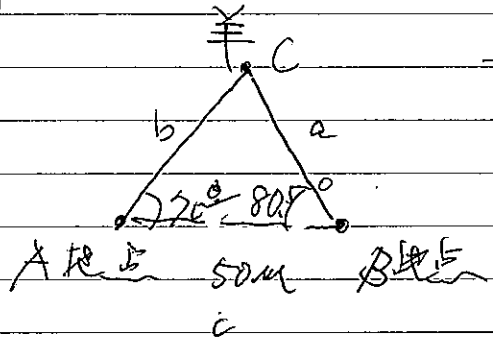 羊
C
b a
80.5°
A地点 50m B地点
c